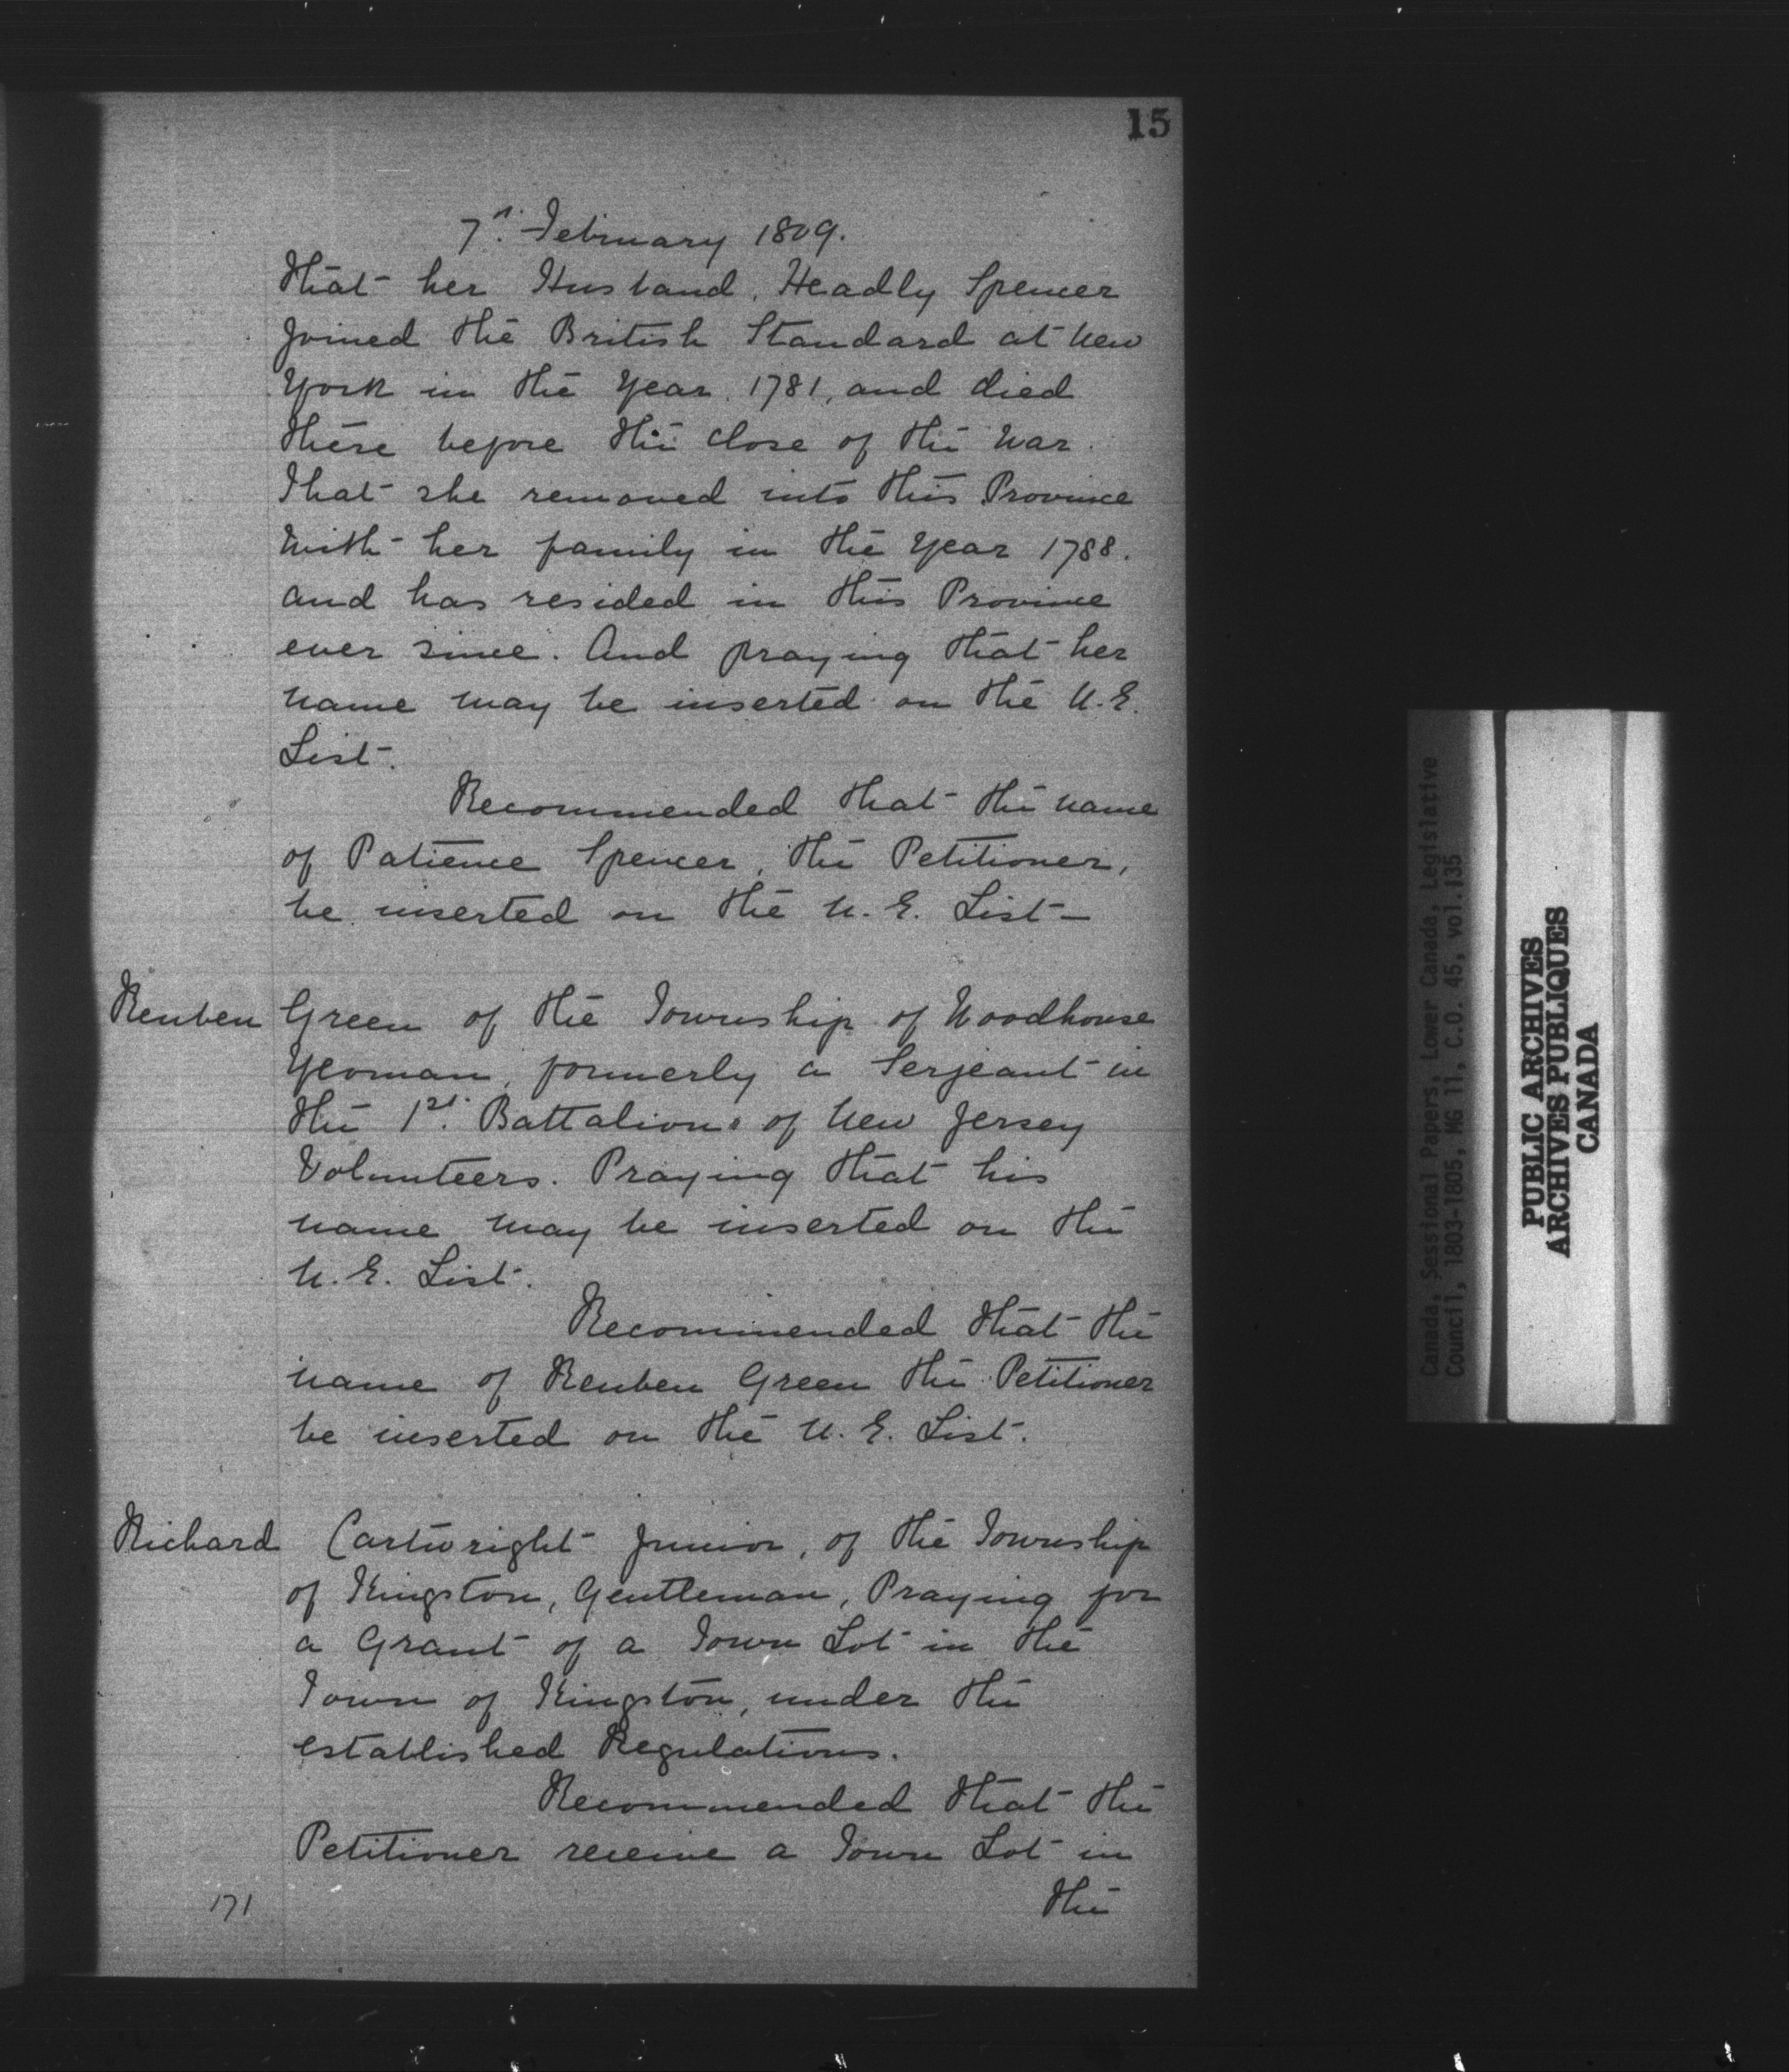 15
7th. February 1809.
That her Husband, Headly Spencer
Joined the British Standard at New
York in the Year 1781, and died
there before the close of the War.
That she removed into this Province
With her family in the Year 1788.
and has resided in this Province
ever since. And praying that her
Name may be inserted on the U.E.
List.
Recommended that the name
of Patience Spencer, the Petitioner,
be inserted on the U.E. List—
Reuben Green of the Township of Woodhouse
Yeoman, formerly a Serjeant in
the 1st. Battalion of New Jersey
Volunteers. Praying that his
name may be inserted on the
U.E. List.
Recommended that the
name of Reuben Green the Petitioner
be inserted on the U.E. List.
Richard Cartwright Junior, of the Township
of Kingston, Gentleman, Praying for
a Grant of a Town Lot in the
Town of Kingston, under the
established Regulations.
Recommended that the
Petitioner receive a Town Lot in
the
171
Canada, Sessional Papers, Lower Canada, Legislative
Council, 1803-1805, MG 11, C.O. 45, vol.135
PUBLIC ARCHIVES
ARCHIVES PUBLIQUES
CANADA